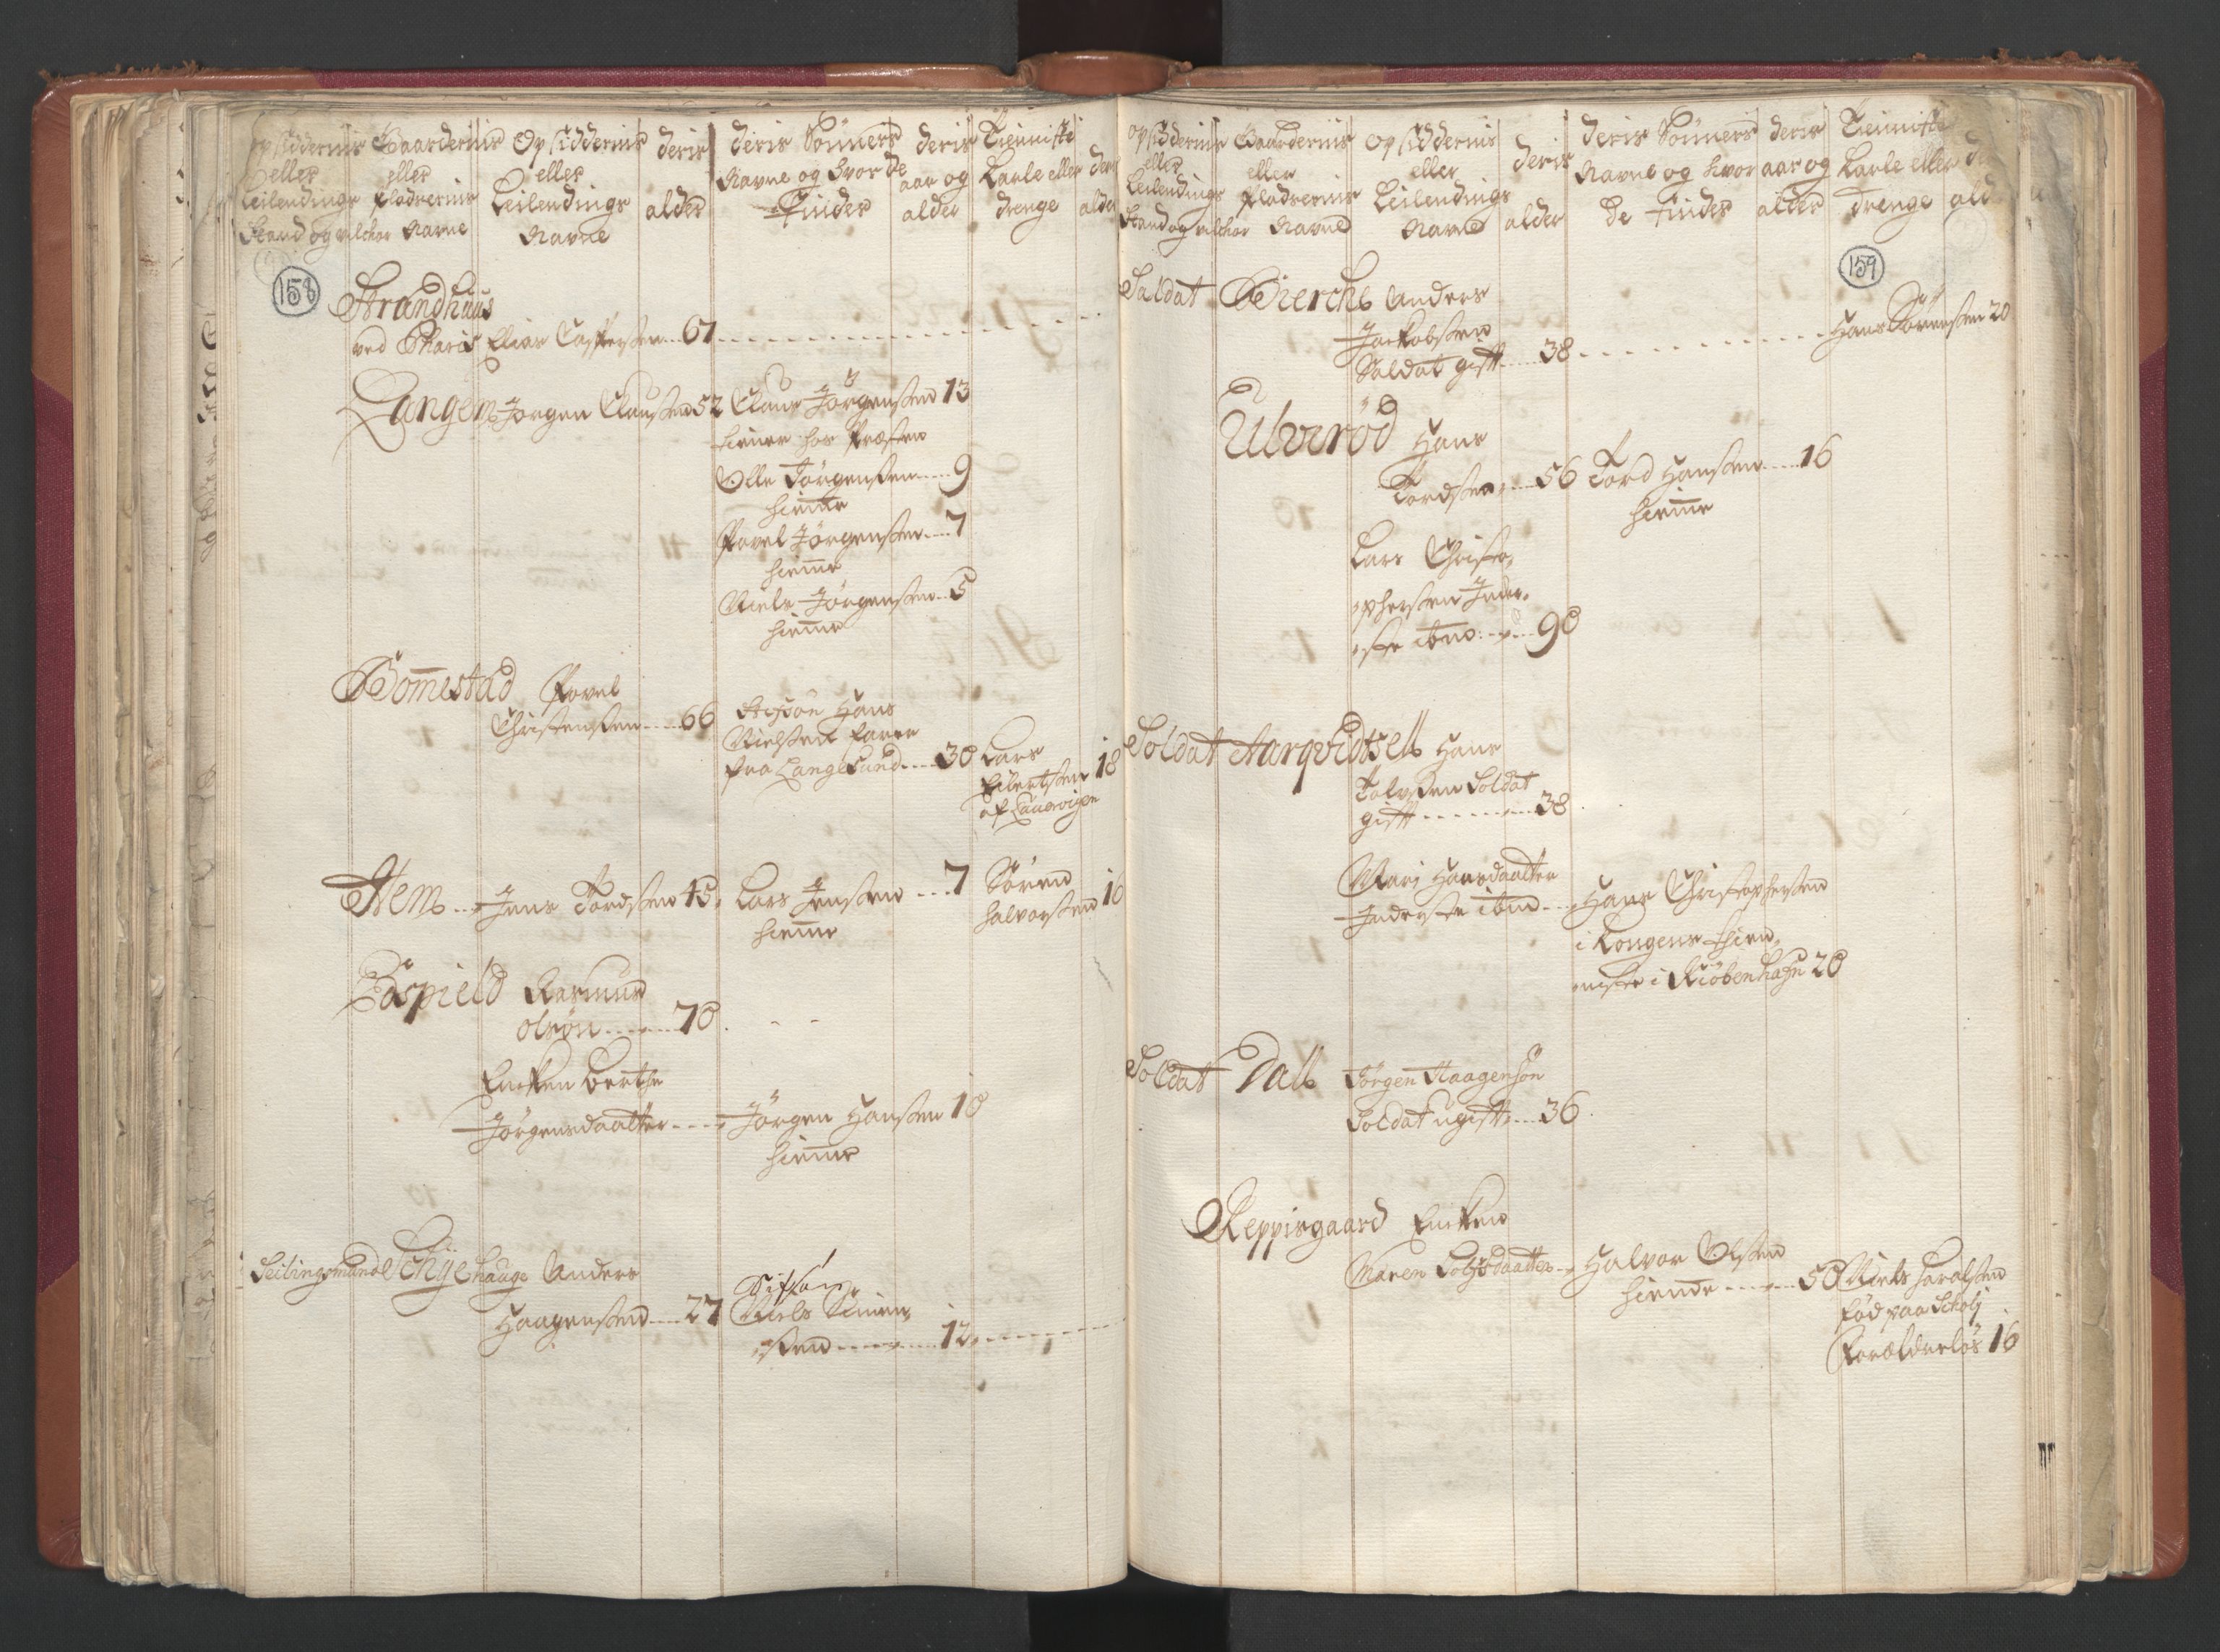 opsiddernis
eller
Leilendings
Stand og vilchor
Gaardernis
eller
pladzernis
Navne
Opsiddernis
eller
Leilendings
Navne
deris
alder
deris Sönners
Navne og hvor de
Findes
deris
aar og
alder
Tienniste
Karle eller
drenge
deris
alder
158
Strandhuus
ved Elias Casperssen 67
Langem Jorgen Claussen 52 Claus Jörgenssen 13
tiener hos Præsten
Olle Jörgenssen 9
hiemme
Povel Jörgenssen 7
hiemme
Niels Jörgenssen 5
hiemme
Bommestad Povel
Christenssen 66 Stifsön Hans
Nielssen
fra Langesund 30 Lars
18
af Laurvigen
Hem Jens Tordssen 45 Lars Jenssen 7 Sören
hiemme halvorssen 16
Rasmus
olsön 70
Encken Berthe
Jörgensdaatter Jörgen Hanssen 10
hiemme
Schijehauge Anders
Haagenssen 27 Stifsön
Niels Simen
ssen 12
opsiddernis
eller
Leilendings
Stand og vilchor
Gaardernis
eller
pladzernis
Navne
opsiddernis
eller
Leilendings
Navne
deris
alder
deris Sönners
Navne og hvor
de findes
deris
aar og
alder
Tienniste
Karle eller
drenge
159
Soldat Bierche Anders
Jackobssen
Soldat gifft 38 Hans Sörenssen 20
Ulverød Hans
Tordssen 56 Tord Hanssen 16
hiemme
Lars Christo
pherssen Inder
ste ibm 90
Soldat Aarqvidtsell Hans
Soldat
gifft 38
Mari Hansdaatter
Inderste ibm Hans Christopherssen
i Kongens tien
niste i Kiöbenhafn 20
Soldat Dall Jörgen Haagensön
Soldat ugift 36
Reppisgaard Encken
Maren daatter Halvor Olssen
hiemme 50 Niels haralssen
fød paa Scholj
Forældreløs 16